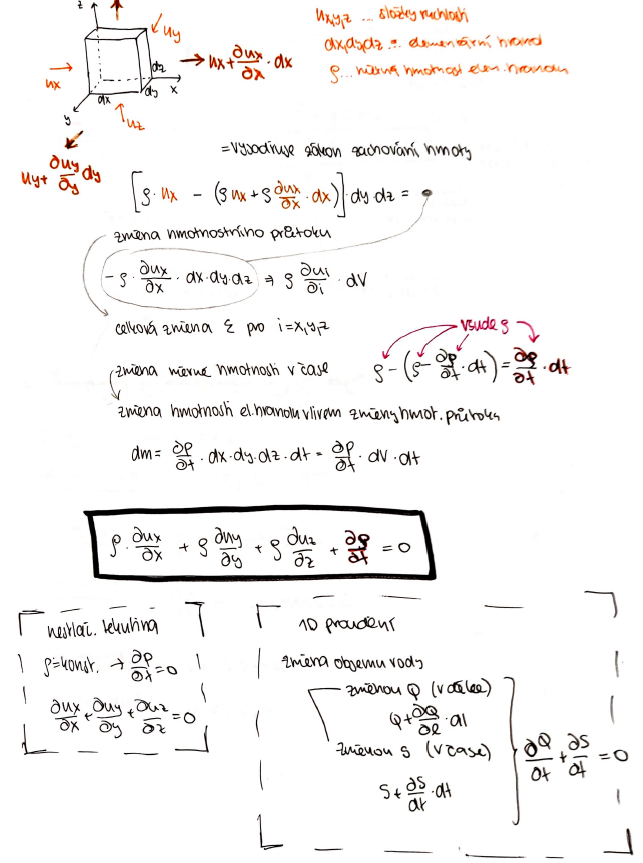 z
uy
ux,y,z ... složky rychlosti
dx,dy,dz ... elementární hranol
ρ... měrná hmotnost elem. hranolu
ux
dz
dy
dx
x
y
uz
ux + ∂ux/∂x · dx
uy + ∂uy/∂y dy
= vyjadřuje zákon zachování hmoty
[ρ · ux − (ρ ux + ρ ∂ux/∂x · dx)] · dy · dz =
změna hmotnostního průtoku
−ρ · ∂ux/∂x · dx · dy · dz ⇒ ρ ∂ui/∂i · dV
celková změna Σ pro i = x,y,z
všude ρ
změna měrné hmotnosti v čase
ρ − (ρ − ∂ρ/∂t · dt) = ∂ρ/∂t · dt
změna hmotnosti el. hranolu vlivem změny hmot. průtoku
dm = ∂ρ/∂t · dx · dy · dz · dt = ∂ρ/∂t · dV · dt
ρ · ∂ux/∂x + ρ ∂uy/∂y + ρ ∂uz/∂z + ∂ρ/∂t = 0
nestlač. tekutina
ρ = konst. → ∂ρ/∂t = 0
∂ux/∂x + ∂uy/∂y + ∂uz/∂z = 0
1D proudění
změna objemu vody
změnou Q (v délce)
Q + ∂Q/∂l · dl
změnou S (v čase)
S + ∂S/∂t · dt
∂Q/∂t + ∂S/∂t = 0